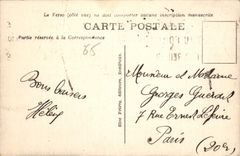 Le Verso (côté vue) ne doit comporter aucune inscription manuscrite
CARTE POSTALE
Partie réservée à la Correspondance
85
Bons baisers
Hélène
Monsieur et Madame
Georges Guerdel
7 Rue Ernest Lefèvre
Paris
(20e)